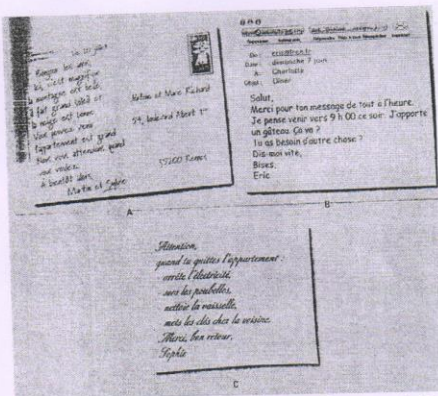 le 10 juillet
Bonjour les amis,
Ici, c'est magnifique
la montagne est belle,
il fait grand soleil et
la neige est bonne
Vous pouvez venir
l'appartement est grand
Nous vous attendons quand
vous voulez,
à bientôt alors
Martin et Sophie
et Marie Richard
54, boulevard Albert 1er
Rennes
A
De : eric@free.fr
Date : dimanche 7 juin
A : Charlotte
Objet : Dîner
Salut,
Merci pour ton message de tout à l'heure.
Je pense venir vers 9 h 00 ce soir. J'apporte
un gâteau. Ça va ?
Tu as besoin d'autre chose ?
Dis-moi vite,
Bises,
Eric
B
Attention,
quand tu quittes l'appartement :
- arrête l'électricité,
- sors les poubelles,
- nettoie la vaisselle,
- mets les clés chez la voisine.
Merci, bon retour,
Sophie
C